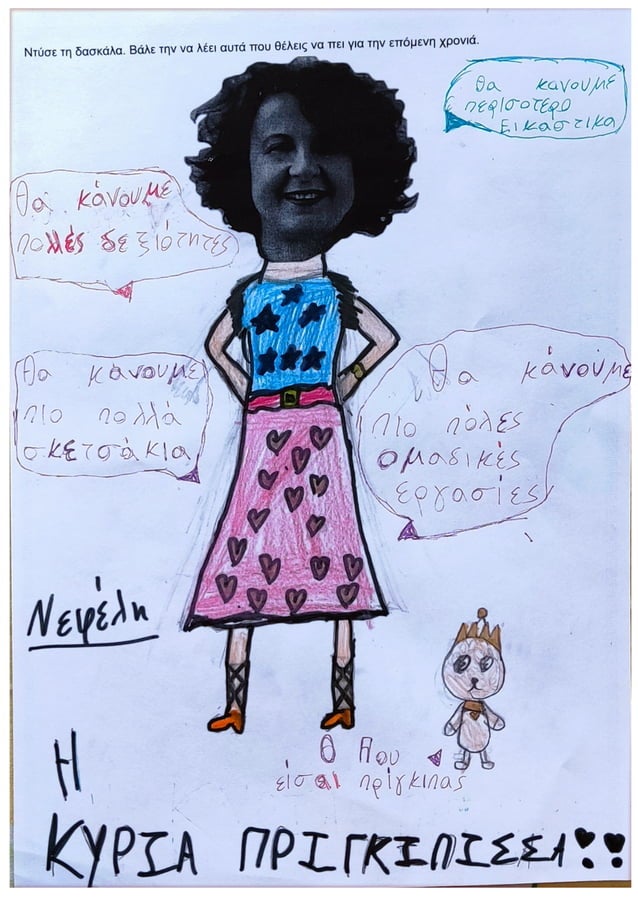 Ντύσε τη δασκάλα. Βάλε την να λέει αυτά που θέλεις να πει για την επόμενη χρονιά.
θα κανουμε
περισοτερο
Εικαστικα
θα κάνουμε
πολλές δεξιότητες
θα κάνουμε
πιο πολλά
σκετσάκια
θα κάνουμε
πιο πόλες
ομαδικές
εργασίες
Νεφέλη
Θ Που
είσαι πρίγκιπας
Η
ΚΥΡΙΑ ΠΡΙΓΚΙΠΙΣΣΑ!!